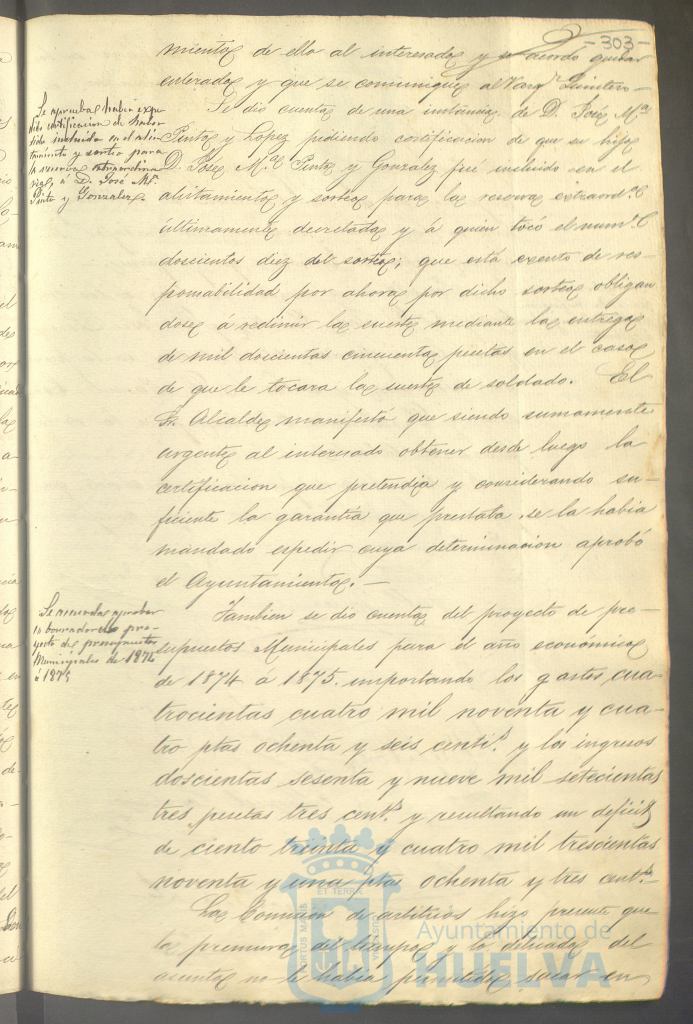 -303-
miento de ello al interesado y se acordó quedar
enterado y que se comunique al Quintero
Se aprueba haber expe
dido certificacion de haber
sido incluido en el alis
tamiento y sorteo para
la reserva extraordina
ria, á D. José Mª
Pinto y Gonzalez
Se dio cuenta de una instancia de D. José Mª
Pinto y Lopez pidiendo certificacion de que su hijo
D. José Mª Pinto y Gonzalez fué incluido en el
alistamiento y sorteo para la reserva extraord.ª
últimamente decretada y á quien tocó el num.º
doscientos diez del sorteo; que está exento de res-
ponsabilidad por ahora por dicho sorteo obligan
dose á redimir la suerte mediante la entrega
de mil doscientas cincuenta pesetas en el caso
de que le tocara la suerte de soldado. El
Sr. Alcalde manifestó que siendo sumamente
urgente al interesado obtener desde luego la
certificacion que pretendia y considerando su-
ficiente la garantía que prestaba, se la habia
mandado expedir cuya determinacion aprobó
el Ayuntamiento.—
Se acuerda aprobar
el borrador pro-
yecto de presupuestos
Municipales de 1874
á 1875
Tambien se dio cuenta del proyecto de pre-
supuestos Municipales para el año económico
de 1874 á 1875. importando los gastos cua
trocientas cuatro mil noventa y cua-
tro ptas ochenta y seis centi.s y los ingresos
doscientas sesenta y nueve mil setecientas
tres pesetas tres cent.s y resultando un deficit
de ciento treinta y cuatro mil trescientas
noventa y una ptas ochenta y tres cent.s—
La Comision de arbitrios hizo presente que
la premura del tiempo y lo delicado del
asunto no le habia permitido sacar en
PORTUS MARIS
ET TERRÆ
CUSTODIA
Ayuntamiento de
HUELVA